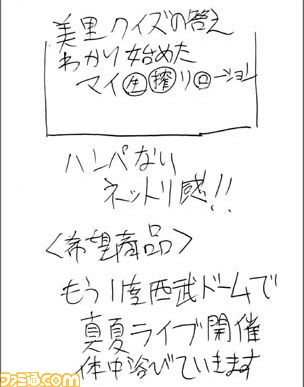 美里クイズの答え
わかり始めた
マイ生搾りローション
ハンパない
ネットリ感!!
<希望商品>
もう1度西武ドームで
真夏ライブ開催
体中浴びていきます
ファミ通.com